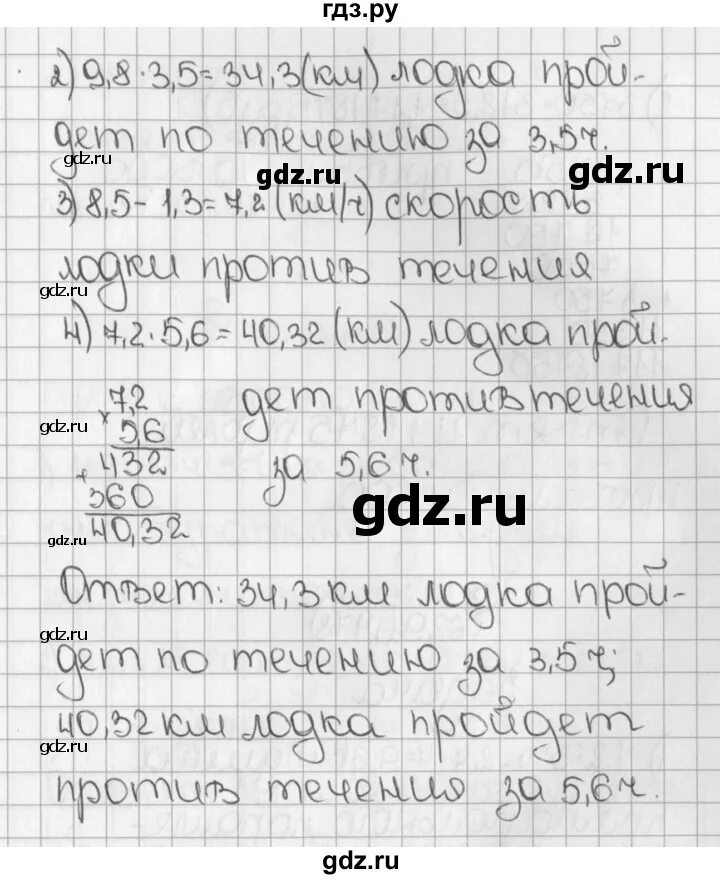 гдз.ру
2) 9,8·3,5=34,3(км) лодка прой-
дет по течению за 3,5ч.
gdz.ru
gdz.ru
gdz.ru
3) 8,5-1,3=7,2(км/ч) скорость
лодки против течения
gdz.ru
4) 7,2·5,6=40,32(км) лодка прой-
7,2 дет против течения
gdz.ru
× 5,6
+ 432 за 5,6ч.
360
gdz.ru
40,32
gdz.ru
Ответ: 34,3км лодка прой-
gdz.ru
дет по течению за 3,5ч;
40,32км лодка пройдет
gdz.ru
против течения за 5,6ч.
gdz.ru